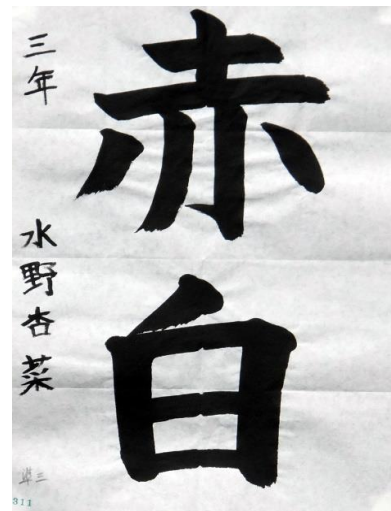 赤白
三年
水野杏菜
準三
311